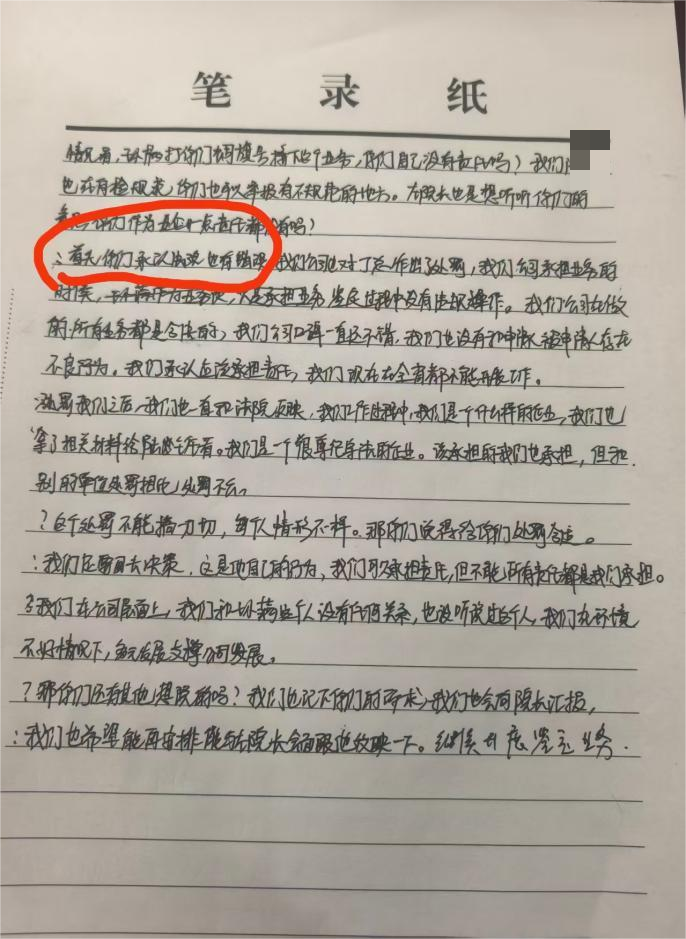 笔录纸
情况看，打你们旗号揽下这个业务，你们自己没有责任吗？我们
也在有检视录，你们也可以举报有不规范的地方。左院长也是想听听你们的
你们作为鉴定责任都没有吗？
：首先你们承认错误也有错误，我们公司也对丁总作出了处罚，我们公司承担业务的
时候，承担业务鉴定过程中没有违规操作。我们公司在做
的所有业务都是合法的，我们公司口碑一直还不错，我们也没有和申请人被申请人存在
不良行为。我们承认应该承担责任，我们现在在全省都不能开展工作。
处罚我们之后，我们也一直和法院反映，我们工作过程中，我们是个什么样的企业，我们也
拿了相关材料给看。我们是一个很尊纪守法的企业。该承担的我们也承担，但和
别的单位处罚相比，处罚不公。
？这个处罚不能搞一刀切，每个人情形不一样。那你们觉得给你们处罚合适。
：我们还要回去决策，这是他自己的行为，我们可以承担责任，但不能所有责任都是我们承担。
我们在公司层面上，我们和这个人没有任何关系，也没听说过这个人，我们在环境
不好情况下，支撑公司发展。
？那你们还有其他想说的吗？我们也记下你们的诉求，我们也会向院长汇报，
：我们也希望能再安排能给院长会面跟他反映一下。继续开展鉴定业务.